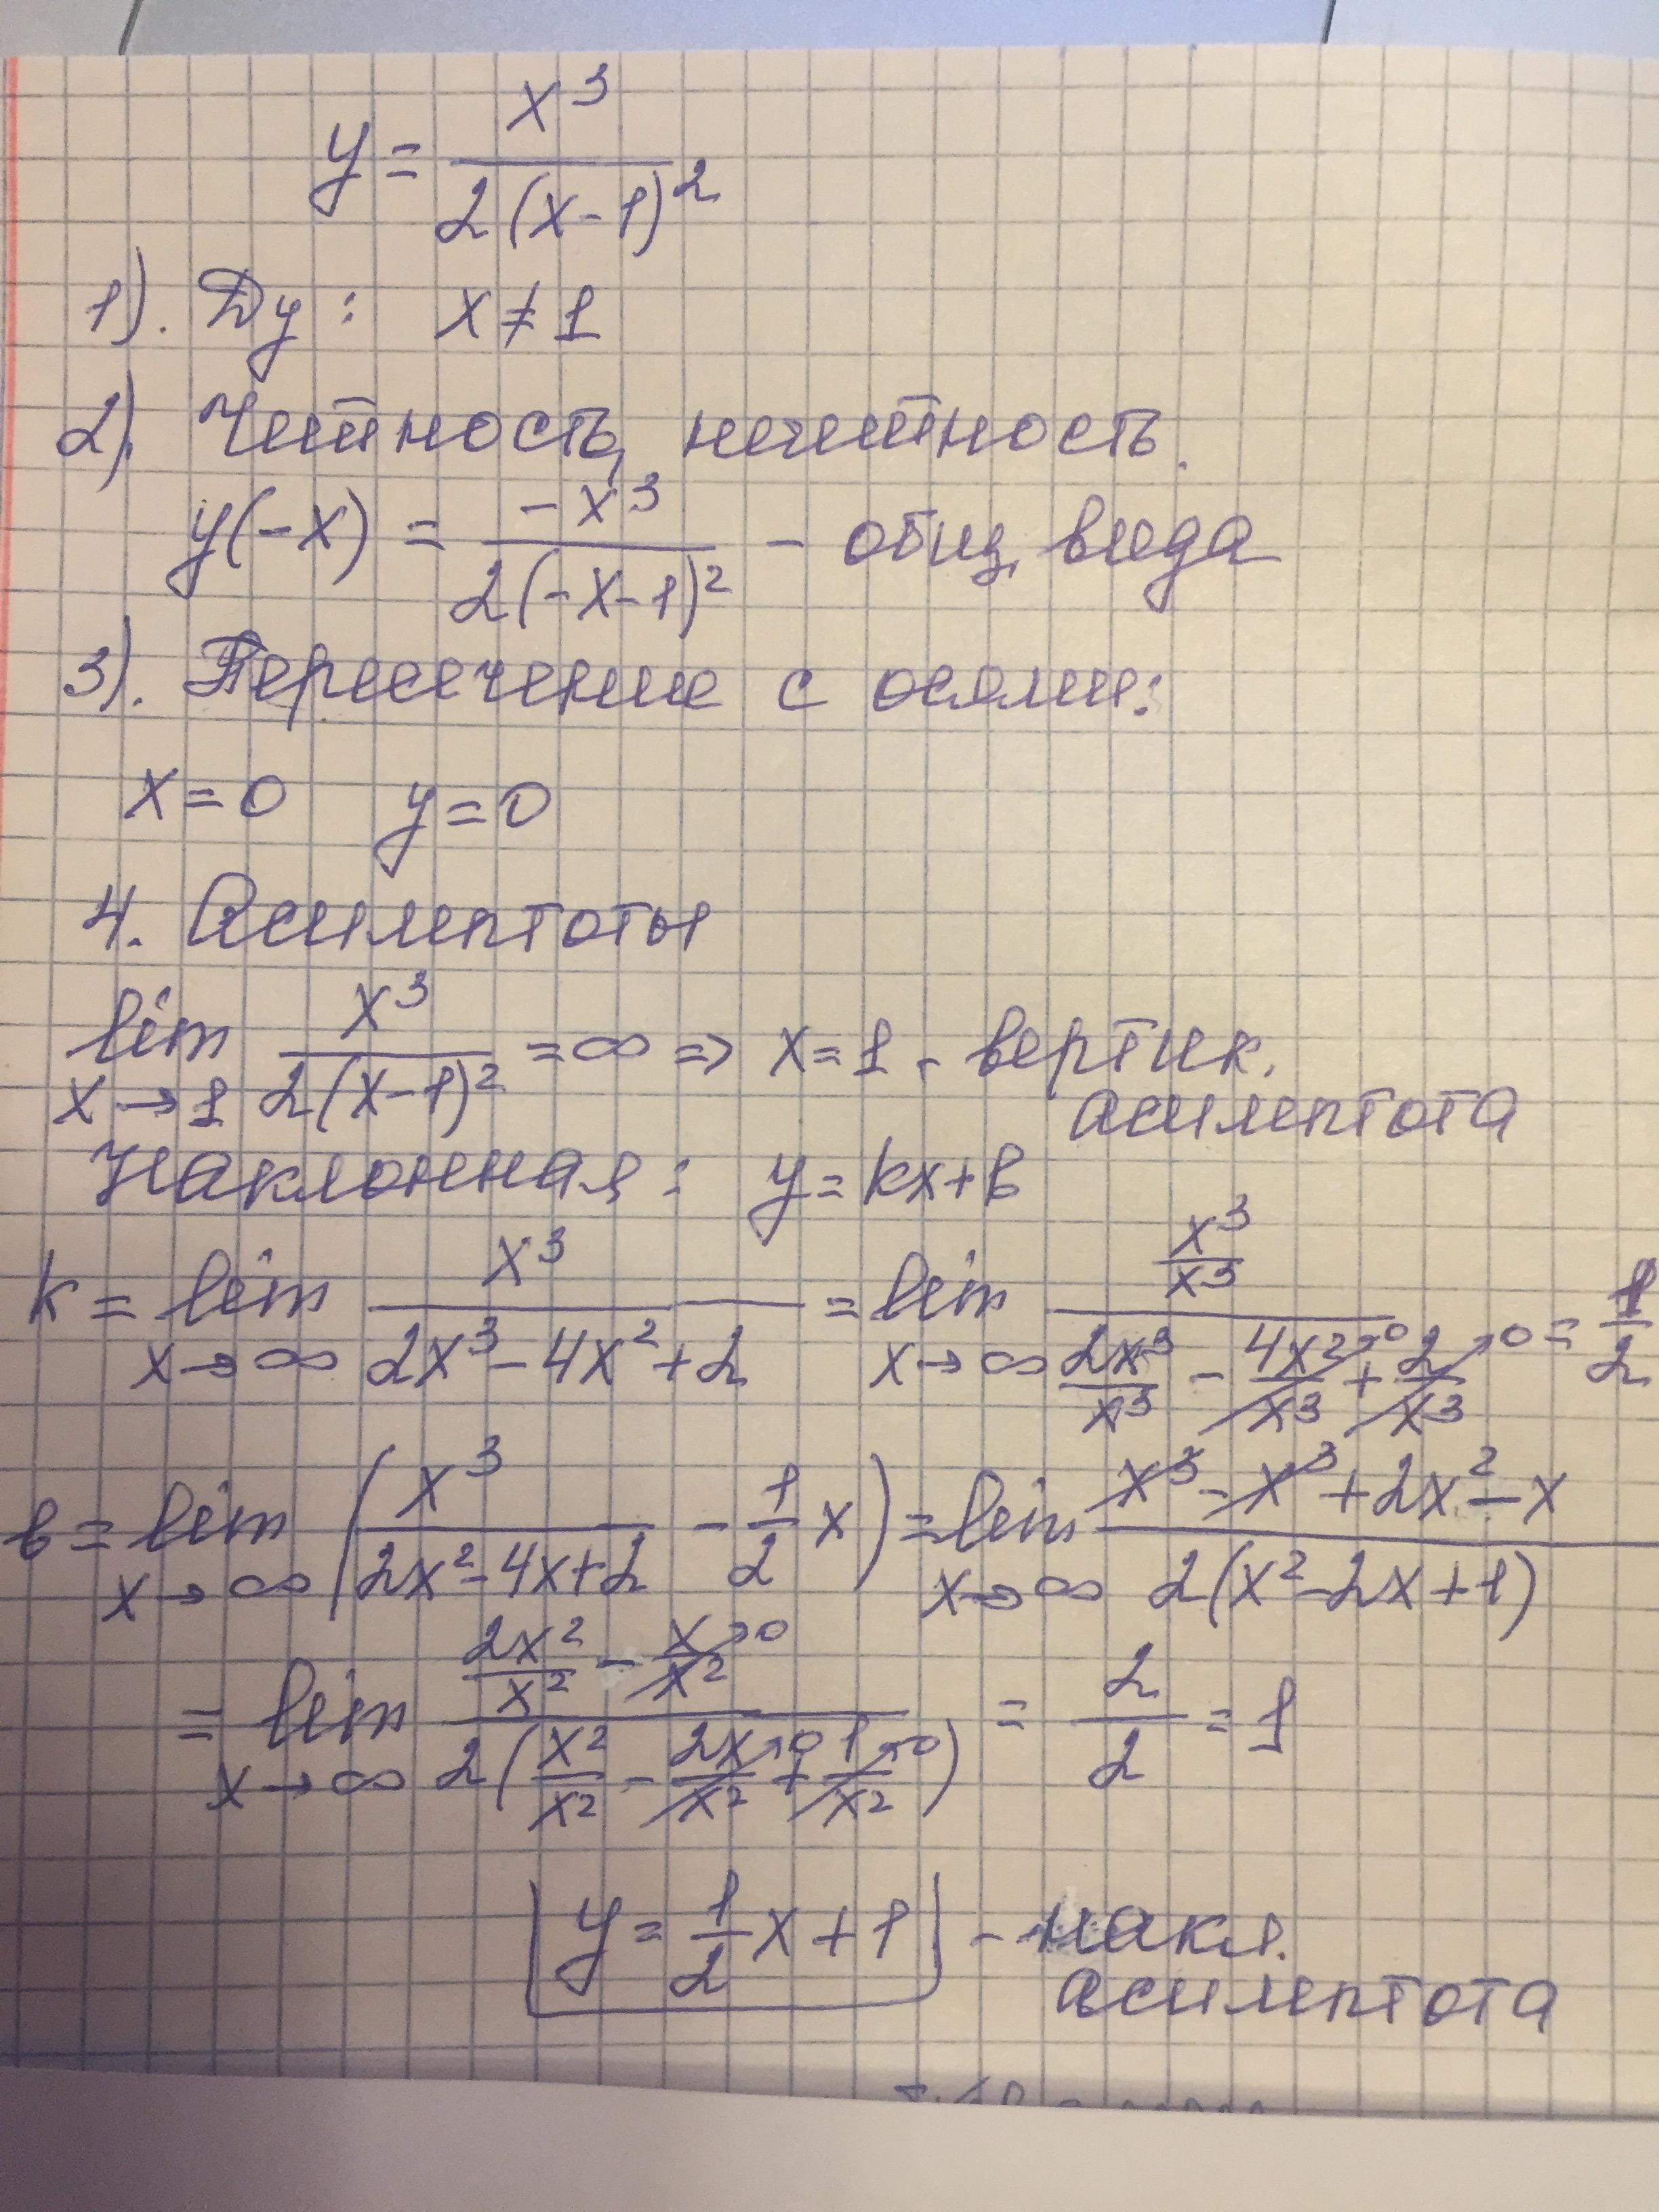 y = x³ / 2(x-1)²
1). Dy: x ≠ 1
2). Четность, нечетность.
y(-x) = -x³ / 2(-x-1)² - общ. вида
3). Пересечение с осями:
x = 0 y = 0
4. Асимптоты
lim x→1 x³ / 2(x-1)² = ∞ => x = 1 - вертик.
асимптота
Наклонная: y = kx + b
k = lim x→∞ x³ / 2x³ - 4x² + 2 = lim x→∞ x³/x³ / 2x³/x³ - 4x²/x³ →0 + 2/x³ →0 = 1/2
b = lim x→∞ (x³ / 2x² - 4x + 2 - 1/2 x) = lim x→∞ x³ - x³ + 2x² - x / 2(x² - 2x + 1)
= lim x→∞ 2x²/x² - x/x² →0 / 2(x²/x² - 2x/x² →0 + 1/x² →0) = 2/2 = 1
y = 1/2 x + 1 - накл.
асимптота